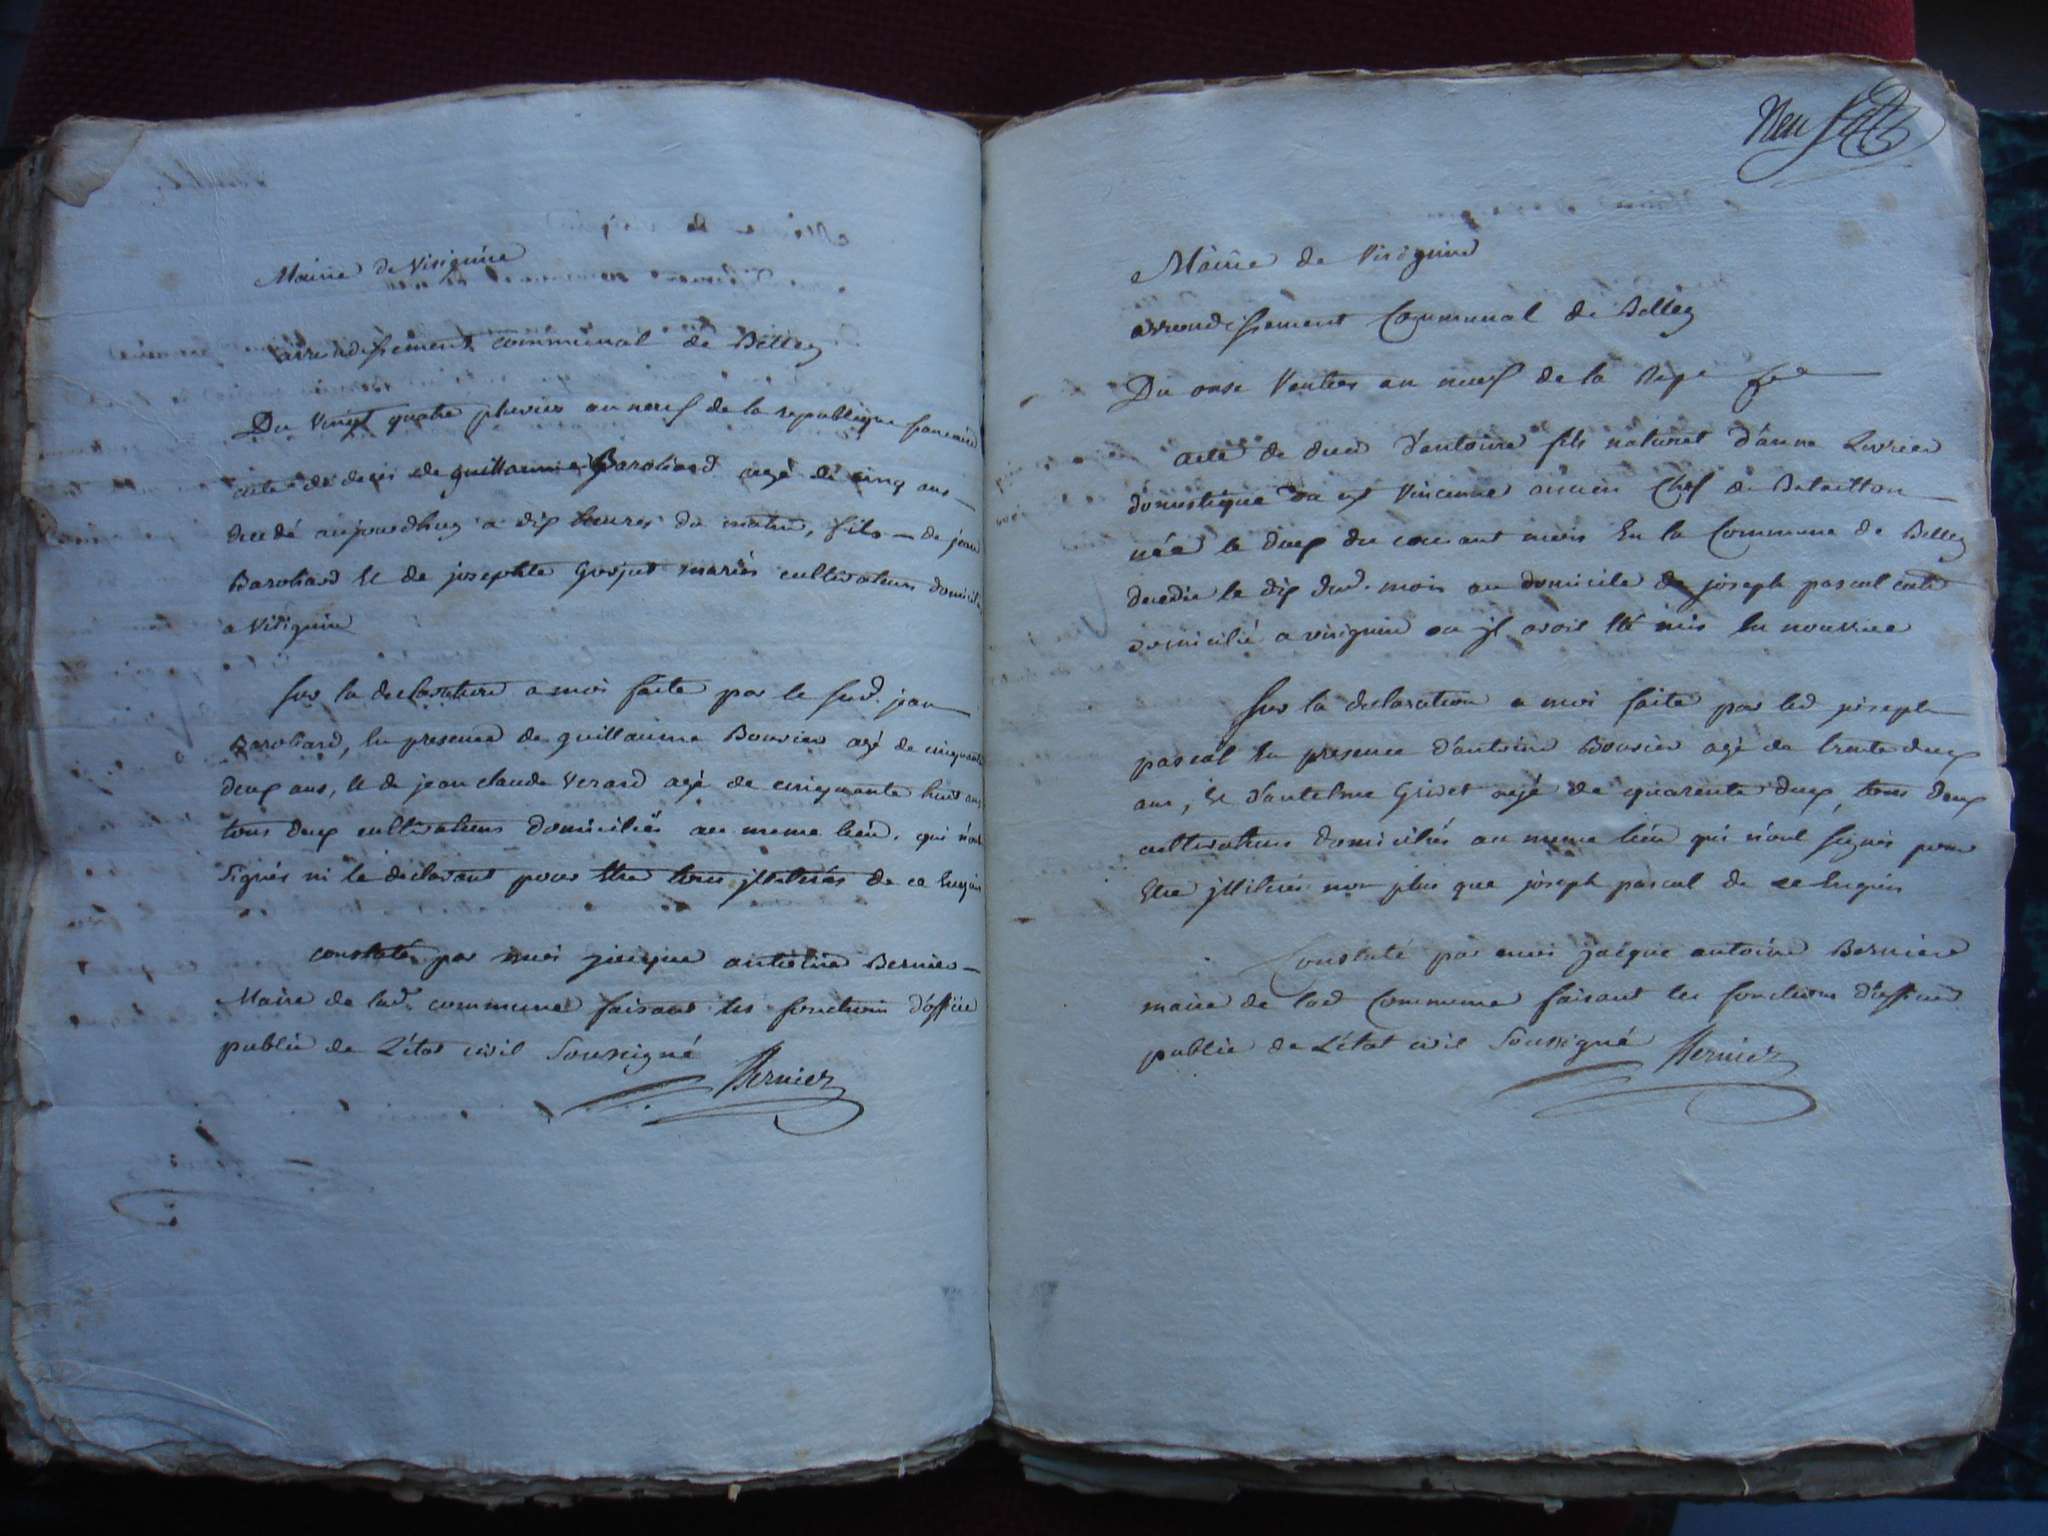 Mairie de Virignin
arrondissement communal de Belley
Du vingt quatre pluviose an neuf de la republique francaise
acte de deces de guillaume Barohard agé de cinq ans
decedé aujourdhuy a dix heures du matin, fils de jean
Barohard et de josephte Gosjut mariés cultivateurs domiciliés
a Virignin
Sur la declaration a moi faite par le sud. jean
Barohard, en presence de guillaume Bouvier agé de cinquante
deux ans, et de jean claude Verard agé de cinquante huit ans
tous deux cultivateurs domiciliés au meme lieu, qui n'ont
signés ni le declarant pour etre tous jllitérés de ce enquis
constaté par moi jacque antoine Bernier
Maire de lad. commune faisant les fonctions d'officier
public de L'état civil Soussigné
Bernier
Neuf
Mairie de Virignin
arrondissement Communal de Belley
Du onze Ventos an neuf de la Rep.
acte de deces d'antoine fils naturel d'anne
domestique du Vincenne ancien Chef de Bataillon
née le deux du courant mois en la Commune de Belley
decedée le dix dud. mois au domicile de joseph pascal
domicilié a virignin ou jl avoit eté mis en nourrice
Sur la declaration a moi faite par led joseph
pascal en presence d'antoine Bouvier agé de trente deux
ans, et d'antelme Grivet agé de quarente deux, tous deux
cultivateurs domiciliés au meme lieu qui n'ont signés pour
etre jllitérés non plus que joseph pascal de ce enquis
Constaté par moi jacque antoine Bernier
maire de lad Commune faisant les fonctions d'officier
public de L'état civil Soussigné
Bernier